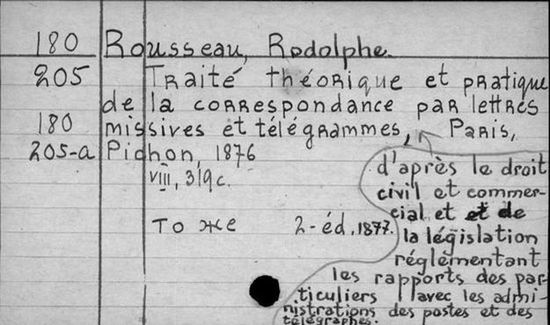 180 Rousseau, Rodolphe.
205 Traité théorique et pratique
de la correspondance par lettres
180 missives et télégrammes, Paris,
205-a Pichon, 1876
VIII, 319c.
То же 2-éd, 1877.
d'après le droit
civil et commer-
cial et et de
la législation
réglémentant
les rapports des par-
ticuliers avec les admi-
nistrations des postes et des
télégraphes.